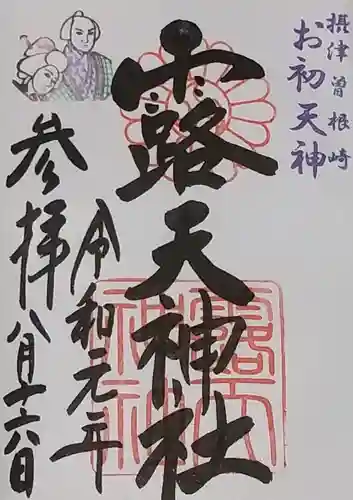 摂津曽根崎
お初天神
露天神社
令和元年
参拝
八月十六日
露天神社